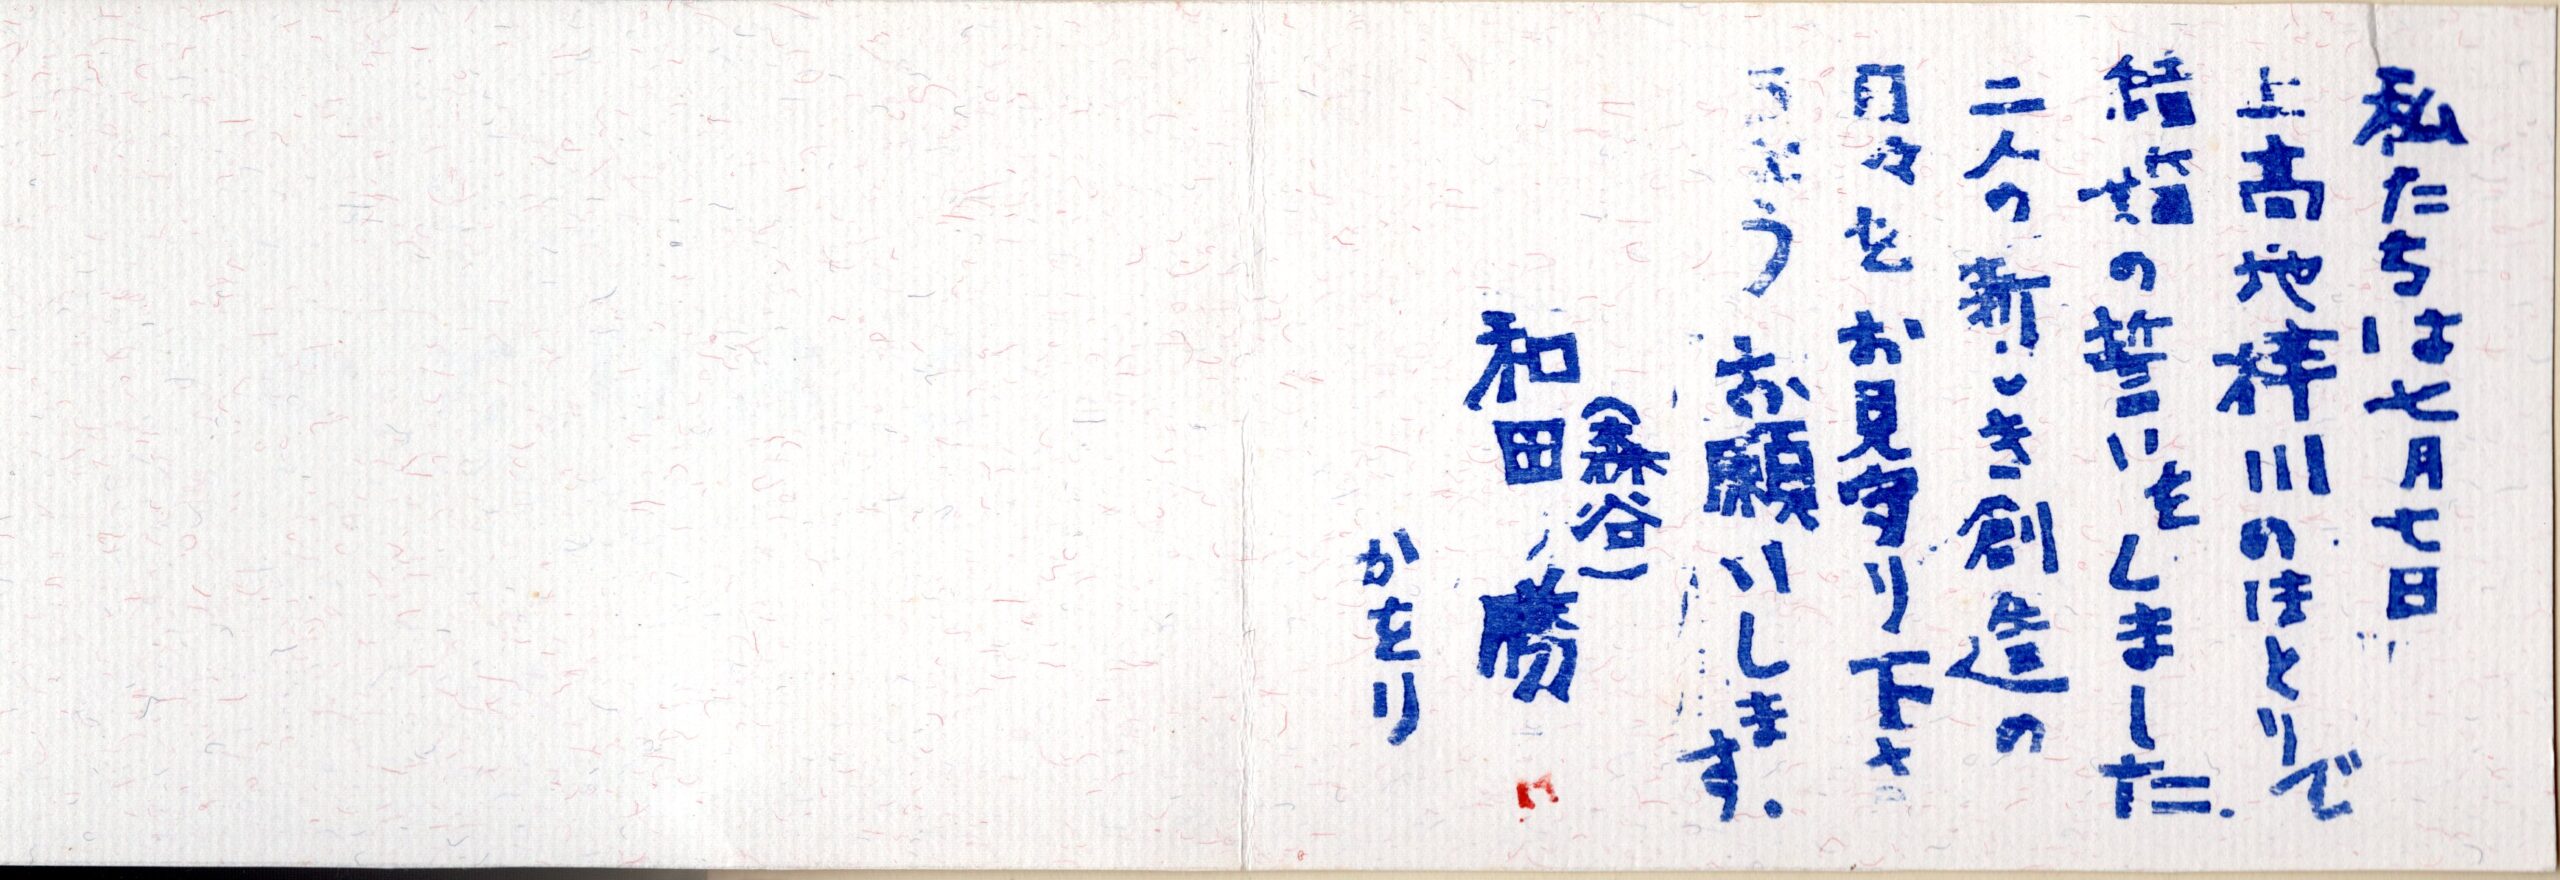 私たちは七月七日
上高地梓川のほとりで
結婚の誓いをしました.
二人の新しき創造の
日々をお見守り下さ
るよう お願いします.
(森谷)
和田 勝
かをり